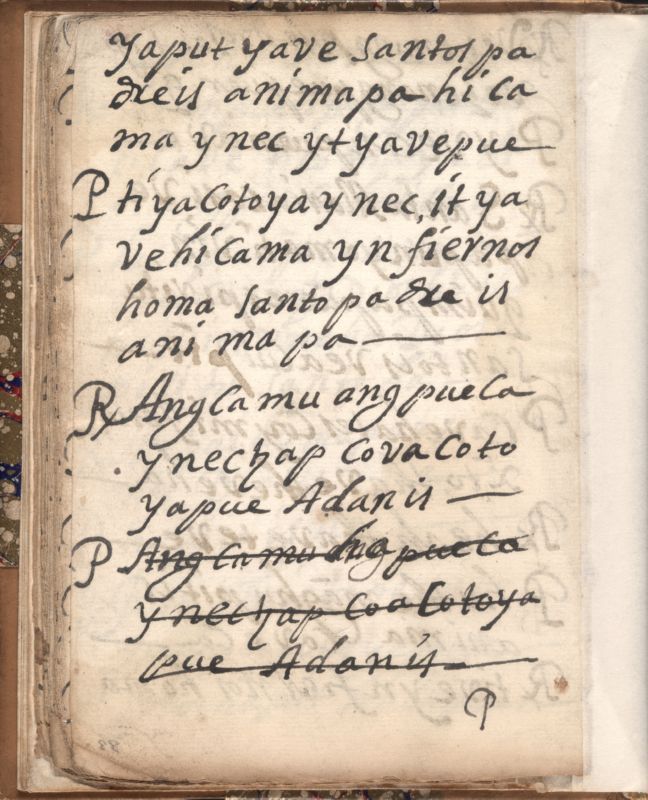 yaput yave santos pa
dreis animapa hi ca
ma y nec yt yavepue
P ti ya Cotoya y nec, it ya
ve hi Cama yn fiernos
homa santo pa dre is
ani ma pa
R Ang Ca mu ang pue Ca
y nechap Cova Coto
yapue Adanis
P Ang Ca mu ang pue Ca
y nechap Coa Cotoya
pue Adanis
P